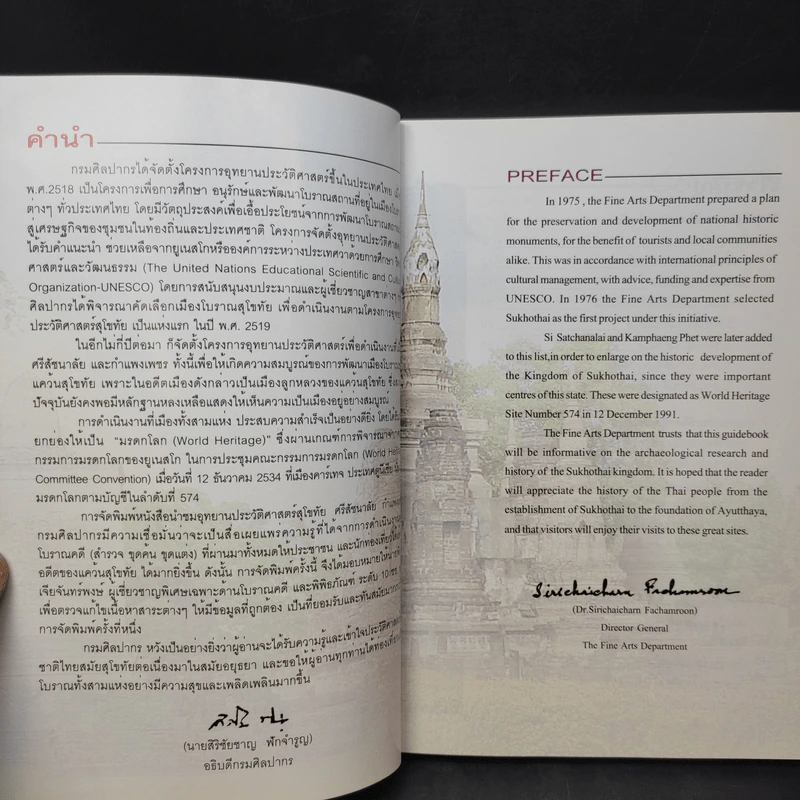 คำนำ
กรมศิลปากรได้จัดตั้งโครงการอุทยานประวัติศาสตร์ขึ้นในประเทศไทย
พ.ศ.2518 เป็นโครงการเพื่อการศึกษา อนุรักษ์และพัฒนาโบราณสถานที่อยู่ในเมือง
ต่างๆ ทั่วประเทศไทย โดยมีวัตถุประสงค์เพื่อเอื้อประโยชน์จากการพัฒนาโบราณสถาน
สู่เศรษฐกิจของชุมชนในท้องถิ่นและประเทศชาติ โครงการจัดตั้งอุทยานประวัติศาสตร์
ได้รับคำแนะนำ ช่วยเหลือจากยูเนสโกหรือองค์การระหว่างประเทศว่าด้วยการศึกษา
ศาสตร์และวัฒนธรรม (The United Nations Educational Scientific and
Organization-UNESCO) โดยการสนับสนุนงบประมาณและผู้เชี่ยวชาญสาขาต่างๆ
ศิลปากรได้พิจารณาคัดเลือกเมืองโบราณสุโขทัย เพื่อดำเนินงานตามโครงการ
ประวัติศาสตร์สุโขทัย เป็นแห่งแรก ในปี พ.ศ. 2519
ในอีกไม่กี่ปีต่อมา ก็จัดตั้งโครงการอุทยานประวัติศาสตร์เพื่อดำเนินงาน
ศรีสัชนาลัย และกำแพงเพชร ทั้งนี้เพื่อให้เกิดความสมบูรณ์ของการพัฒนาเมือง
แคว้นสุโขทัย เพราะในอดีตเมืองดังกล่าวเป็นเมืองลูกหลวงของแคว้นสุโขทัย
ปัจจุบันยังคงพอมีหลักฐานหลงเหลือแสดงให้เห็นความเป็นเมืองอยู่อย่างสมบูรณ์
การดำเนินงานที่เมืองทั้งสามแห่ง ประสบความสำเร็จเป็นอย่างดียิ่ง
ยกย่องให้เป็น "มรดกโลก (World Heritage)" ซึ่งผ่านเกณฑ์การพิจารณา
กรรมการมรดกโลกของยูเนสโก ในการประชุมคณะกรรมการมรดกโลก (World
Committee Convention) เมื่อวันที่ 12 ธันวาคม 2534 ที่เมืองคาร์เทจ ประเทศตูนีเซีย
มรดกโลกตามบัญชีในลำดับที่ 574
การจัดพิมพ์หนังสือนำชมอุทยานประวัติศาสตร์สุโขทัย ศรีสัชนาลัย
กรมศิลปากรมีความเชื่อมั่นว่าจะเป็นสื่อเผยแพร่ความรู้ที่ได้จากการดำเนินงาน
โบราณคดี (สำรวจ ขุดค้น ขุดแต่ง) ที่ผ่านมาทั้งหมดให้ประชาชน และนักท่องเที่ยว
อดีตของแคว้นสุโขทัย ได้มากยิ่งขึ้น ดังนั้น การจัดพิมพ์ครั้งนี้ จึงได้มอบหมายให้
เจียจันทร์พงษ์ ผู้เชี่ยวชาญพิเศษเฉพาะด้านโบราณคดี และพิพิธภัณฑ์ ระดับ 10
เพื่อตรวจแก้ไขเนื้อหาสาระต่างๆ ให้มีข้อมูลที่ถูกต้อง เป็นที่ยอมรับและทันสมัย
การจัดพิมพ์ครั้งที่หนึ่ง
กรมศิลปากร หวังเป็นอย่างยิ่งว่าผู้อ่านจะได้รับความรู้และเข้าใจ
ชาติไทยสมัยสุโขทัยต่อเนื่องมาในสมัยอยุธยา และขอให้ผู้อ่านทุกท่าน
โบราณทั้งสามแห่งอย่างมีความสุขและเพลิดเพลินมากขึ้น
(นายสิริชัยชาญ ฟักจำรูญ)
อธิบดีกรมศิลปากร
PREFACE
In 1975 , the Fine Arts Department prepared a plan
for the preservation and development of national historic
monuments, for the benefit of tourists and local communities
alike. This was in accordance with international principles of
cultural management, with advice, funding and expertise from
UNESCO. In 1976 the Fine Arts Department selected
Sukhothai as the first project under this initiative.
Si Satchanalai and Kamphaeng Phet were later added
to this list,in order to enlarge on the historic development of
the Kingdom of Sukhothai, since they were important
centres of this state. These were designated as World Heritage
Site Number 574 in 12 December 1991.
The Fine Arts Department trusts that this guidebook
will be informative on the archaeological research and
history of the Sukhothai kingdom. It is hoped that the reader
will appreciate the history of the Thai people from the
establishment of Sukhothai to the foundation of Ayutthaya,
and that visitors will enjoy their visits to these great sites.
Sirichaicharn Fachamroon
(Dr.Sirichaicharn Fachamroon)
Director General
The Fine Arts Department